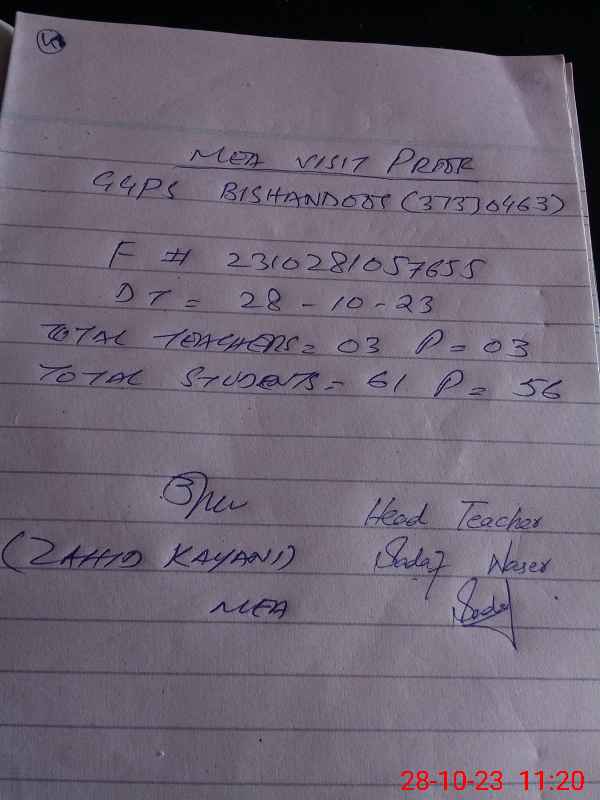 MEA VISIT PROOF
GGPS BISHANDOOS (37330463)
F # 2310281057655
DT = 28-10-23
TOTAL TEACHERS = 03 P = 03
TOTAL STUDENTS = 61 P = 56
Head Teacher
(ZAHID KAYANI) Sadaf Naser
MEA Sadaf
28-10-23 11:20